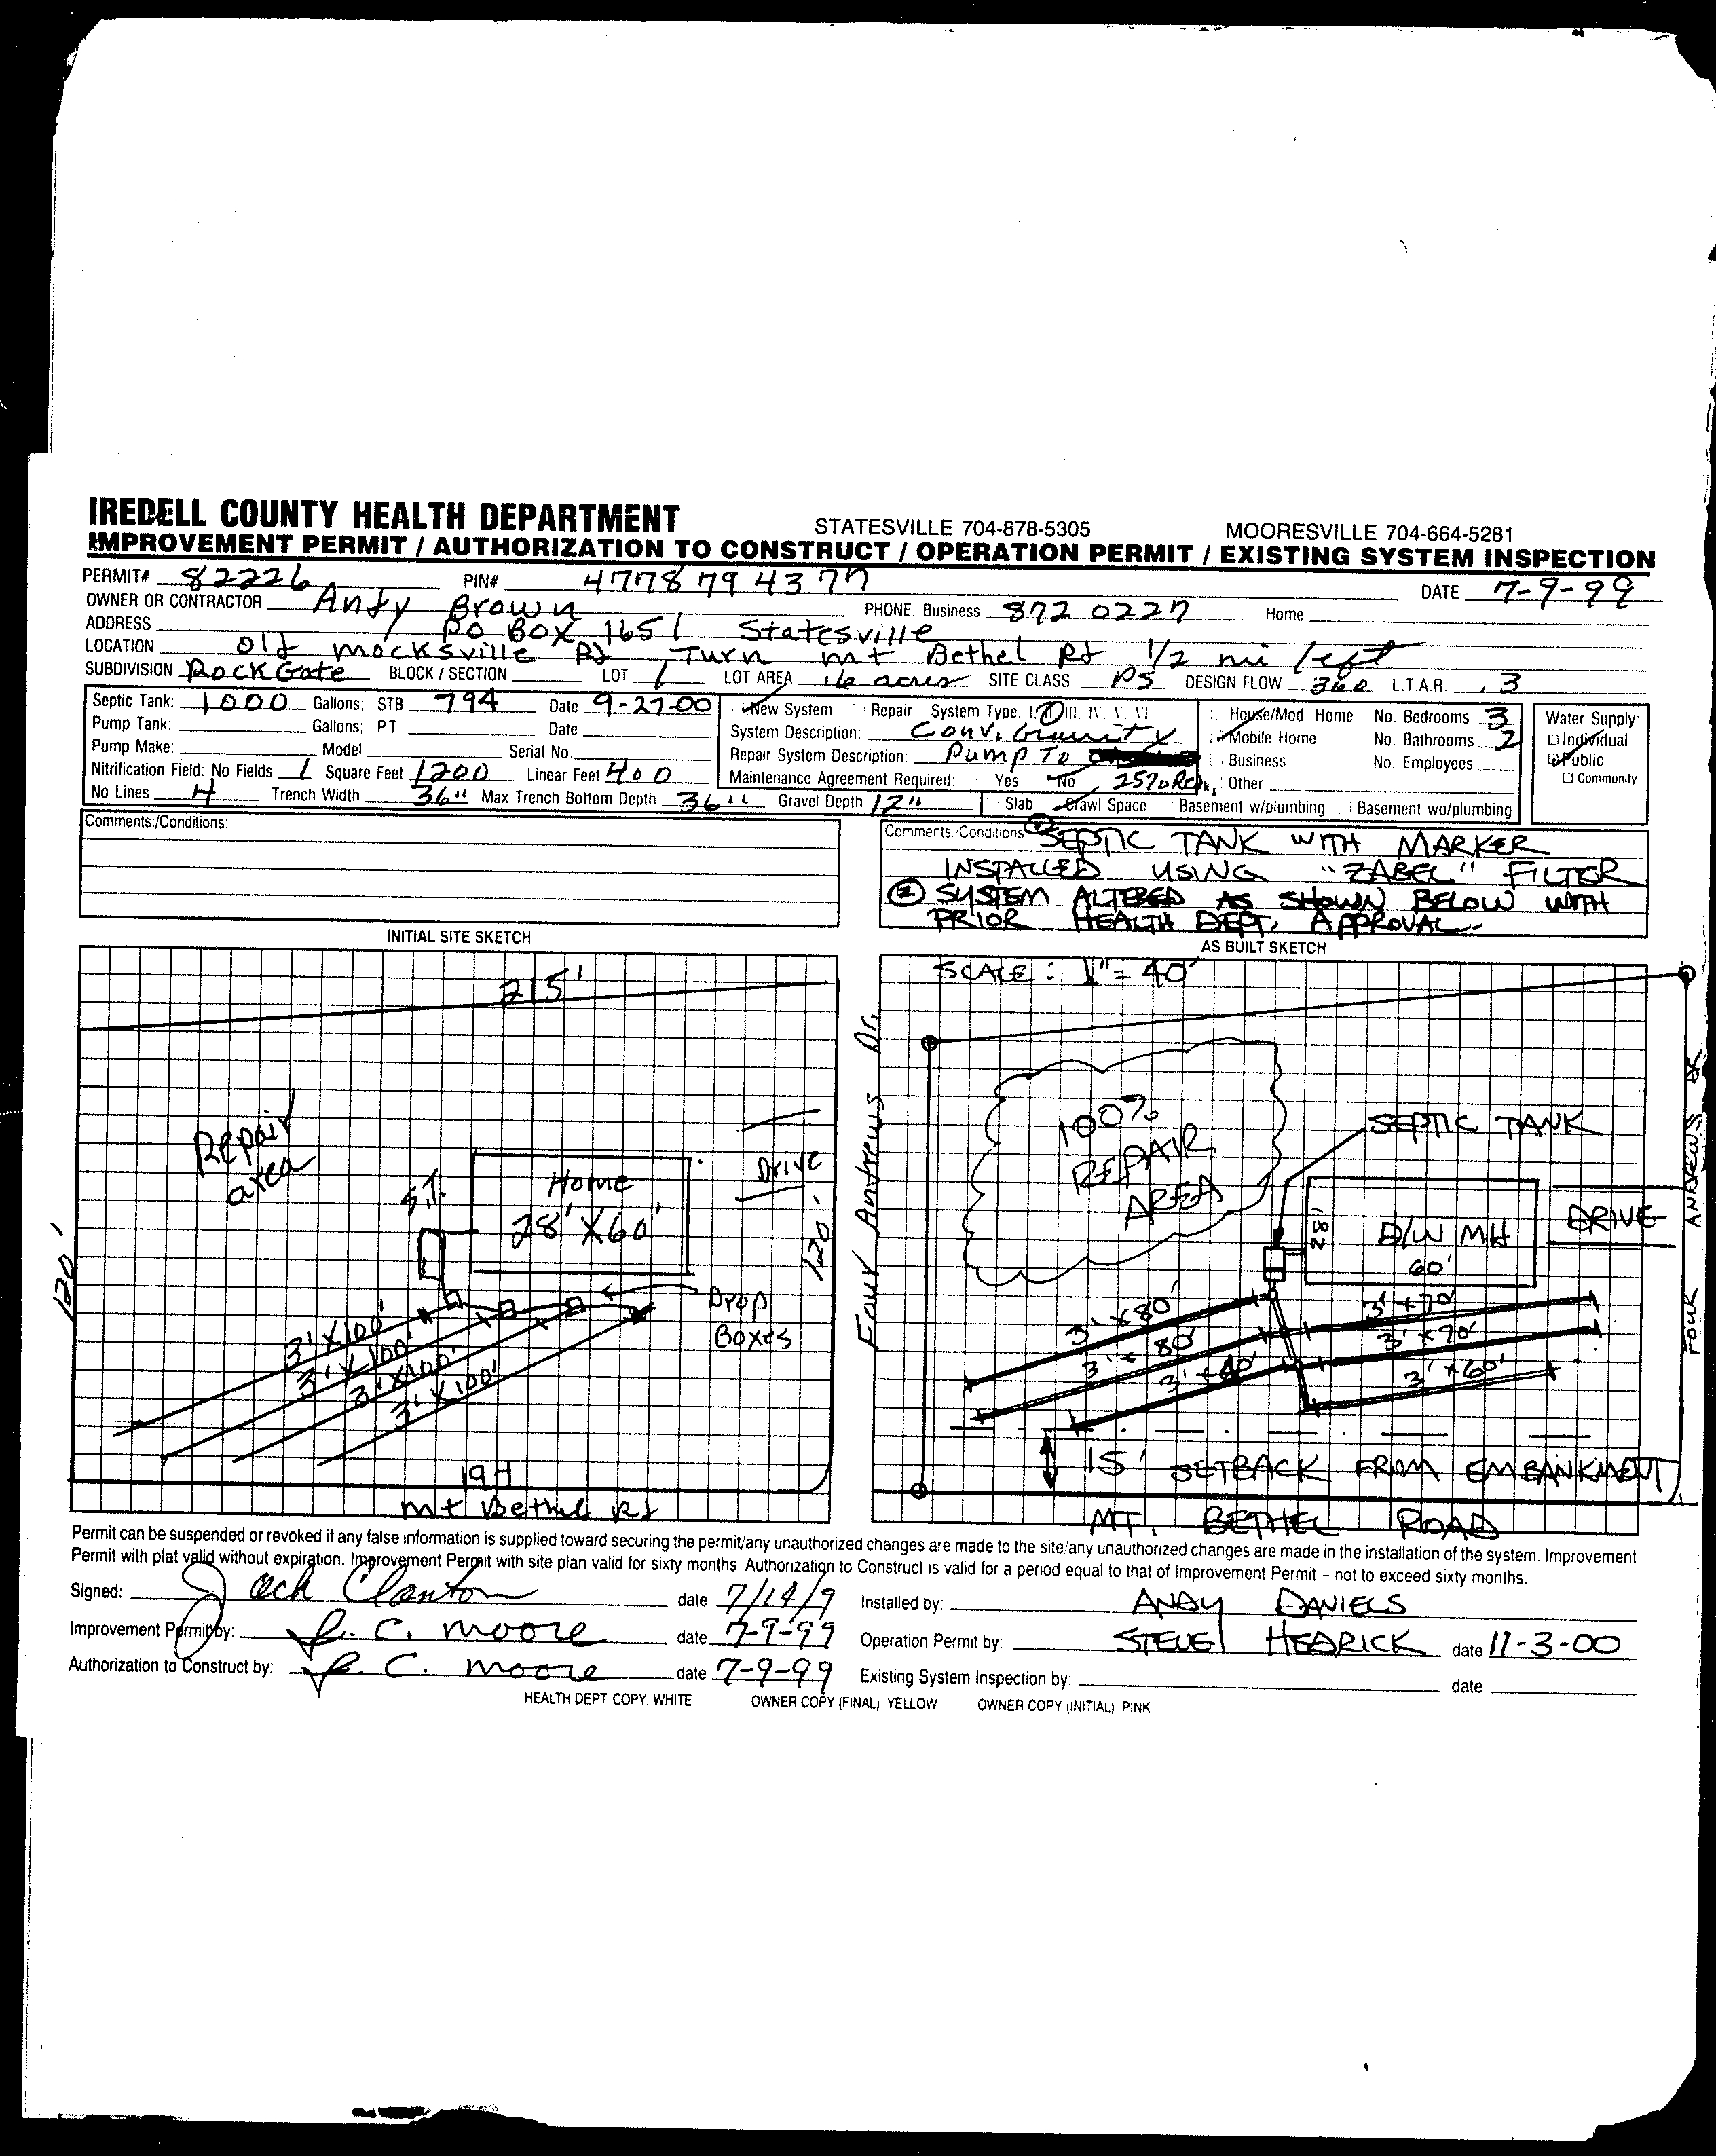 IREDELL COUNTY HEALTH DEPARTMENT STATESVILLE 704-878-5305 MOORESVILLE 704-664-5281
IMPROVEMENT PERMIT / AUTHORIZATION TO CONSTRUCT / OPERATION PERMIT / EXISTING SYSTEM INSPECTION
PERMIT# 82226 PIN# 4778794377 DATE 7-9-99
OWNER OR CONTRACTOR Andy Brown PHONE: Business 872 0227 Home
ADDRESS PO BOX 1651 Statesville
LOCATION Old Mocksville Rd Turn Mt Bethel Rd 1/2 mi left
SUBDIVISION RockGate BLOCK / SECTION LOT 1 LOT AREA .6 acres SITE CLASS PS DESIGN FLOW 360 L.T.A.R. .3
Septic Tank: 1000 Gallons; STB 794 Date 9-27-00
Pump Tank: Gallons; PT Date
Pump Make: Model Serial No.
Nitrification Field: No Fields 1 Square Feet 1200 Linear Feet 400
No Lines 4 Trench Width 36" Max Trench Bottom Depth 36" Gravel Depth 12"
New System Repair System Type: I, II, III, IV, V, VI
System Description: Conv. Gravity
Repair System Description: Pump To
Maintenance Agreement Required: Yes No 25% Red.
Slab Crawl Space Basement w/plumbing Basement wo/plumbing
House/Mod. Home No. Bedrooms 3
Mobile Home No. Bathrooms 2
Business No. Employees
Other
Water Supply:
Individual
Public
Community
Comments:/Conditions:
Comments:/Conditions ① SEPTIC TANK WITH MARKER
INSTALLED USING "ZABEL" FILTER
② SYSTEM ALTERED AS SHOWN BELOW WITH
PRIOR HEALTH DEPT. APPROVAL.
INITIAL SITE SKETCH
215'
Repair
area
S.T.
Home
28' X 60'
Drive
120'
120'
Drop
Boxes
3' X 100'
3' X 100'
3' X 100'
3' X 100'
194
Mt Bethel Rd
AS BUILT SKETCH
SCALE: 1" = 40'
Four Andrews Dr.
100%
REPAIR
AREA
SEPTIC TANK
28'
D/W MH
60'
DRIVE
FOUR ANDREWS DR
3' x 80'
3' x 80'
3' x 40'
3' x 70'
3' x 70'
3' x 60'
15' SETBACK FROM EMBANKMENT
MT. BETHEL ROAD
Permit can be suspended or revoked if any false information is supplied toward securing the permit/any unauthorized changes are made to the site/any unauthorized changes are made in the installation of the system. Improvement
Permit with plat valid without expiration. Improvement Permit with site plan valid for sixty months. Authorization to Construct is valid for a period equal to that of Improvement Permit – not to exceed sixty months.
Signed: Jack Clanton date 7/14/9 Installed by: ANDY DANIELS
Improvement Permit by: J. C. Moore date 7-9-99 Operation Permit by: STEVE HEDRICK date 11-3-00
Authorization to Construct by: J. C. Moore date 7-9-99 Existing System Inspection by: date
HEALTH DEPT COPY: WHITE OWNER COPY (FINAL) YELLOW OWNER COPY (INITIAL) PINK